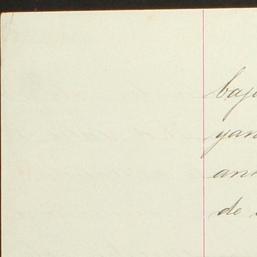 baj
yan
ann
de